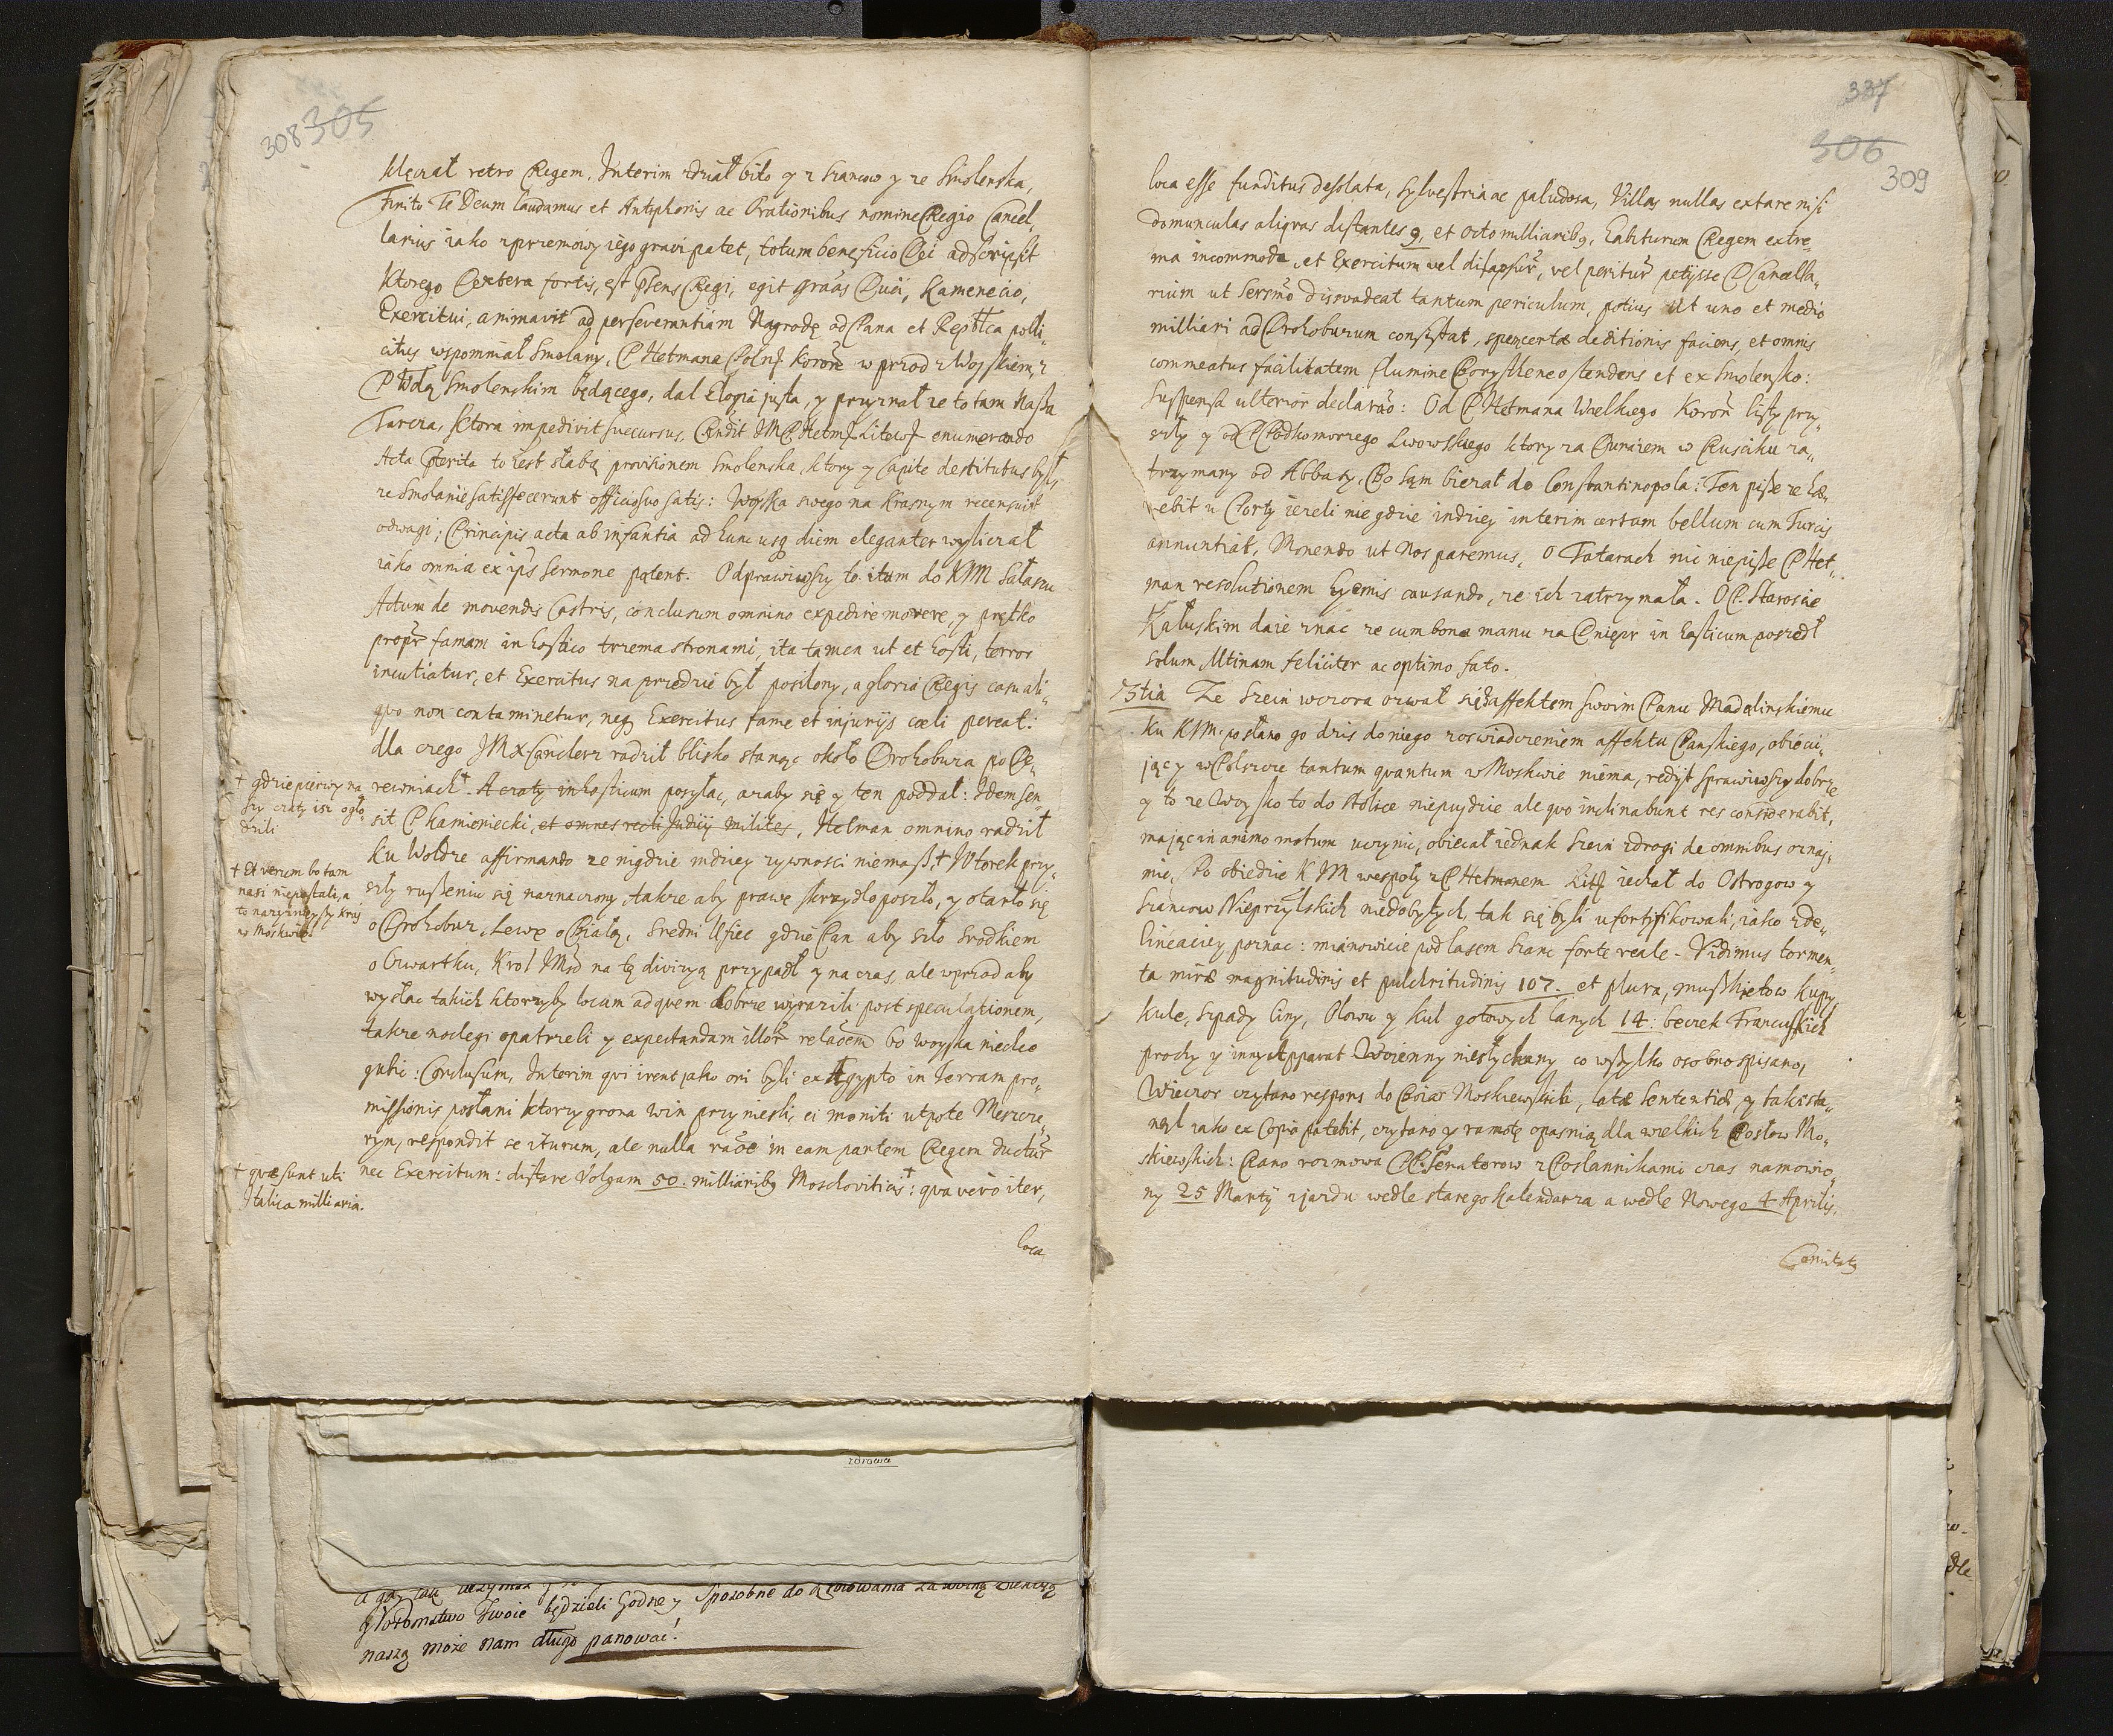 308 305
klęczał retro Regem. Interim zdział bito y z szancow y ze Smolenska,
Finito Te Deum laudamus et Antiphonis ac Orationibus nomine Regio Cancel„
larius iako z przemowy iego gravi patet, totum beneficio Dei adscripsit
Ktorego Dextera fortis, est pñens Regi, egit grãas Duci, Kamenecio,
Exercitui, animavit ad perseverantiam Nagrodę od Pana et Repttca polli„
citus wspomniał Smolany, P Hetmana Polnẽ Koroñ w przod z Woyskiem, z
P Wdą Smolenskim będącego, dal Elogia justa, y przyznał ze to tam Nasza
Tarcza, sctora impedivit succursus. JM P Hetm Litew enumerando
Acta pterita to iest słabą provisionem Smolenska, ktory y Capite destitutus był,
ze Smolanie satisfecerunt officio suo satis: Woyska swego na Krasnym recensuit
odwagi; Principis acta ab infantia ad hunc usq diem eleganter wyliczał
iako omnia ex ips sermone patent. Odprawiwszy to itum do KJM Sałaszu
Actum de movendis Castris, conclusum omnino expedire movere, y prętko
propr famam in hostico trzema stronami, ita tamen ut et hosti, terror
incutiatur, et Exercitus na przedzie był posilony, a gloria Regis casu ali„
quo non contaminetur, neq Exercitus fame et injurijs cœli pereat:
dla czego JMX Canclerz radził blisko stanąc około Drohobuza po De„
rewniach†. A czaty in hosticum posyłac, azaby się y ten poddał: Idem sen„
sit P Kamieniecki, et omnes recti Judicij milites, Hetman omnino radził
ku Wołdze affirmando ze nigdzie indziey zywnosci niemasz.† Wtorek przy„
szły ruszeniu się naznaczony, takze aby prawe skrzydło poszło, y otarło się
o Drohobuz, Lewe o Białą, Sredni Ufiec gdzie Pan aby szło srodkiem
o Czwartku, Krol JMsc na tę divizyą przypadł y na czas, ale wprzod aby
wysłac takich ktorzyby locum ad quem dobrze wyrazili post speculationem,
takze noclegi opatrzeli y expectandam illor relaõem bo woyska niechce
gubic: Conclusum, Interim qvi irent jako oni byli ex Ægypto in Terram pro„
missionis posłani ktorzy grona win przyniesli, ei moniti utpote Meszcze„
ryn, respondit se iturum, ale nulla raõe in eam partem Regem ductur
nec Exercitum: distare Volgam 50. milliaribq Moschoviticis†: qva vero iter,
loca
† gdzie pierwy na
szy czaty isc ogło
dzili
† Et verum bo tam
nasi niepostali, a
to nazyznieyszy kray
w Moskwie.
† qvæ sunt uti
Italica milliaria.
zdrowia
y Potomstwo Twoie będzieli Godne y Sposobne do
naszą może nam długo panować!
337
306
309
loca esse funditus desolata, sylvestria ac paludosa, Villas nullas extare nisi
domunculas aliqvas distantes 9, et octo milliaribq, habiturum Regem extre„
ma incommoda, et Exercitum vel dilapsur, vel peritur petijsse P Cancella„
rium ut Sersmo disvadeat tantum periculum, potius ut uno et medio
milliari ad Drohoburum consistat, spem certæ deditionis faciens, et omnis
commeatus facilitatem flumine Borysthene ostendens et ex Smolensko:
Suspensa ulterior declarão: Od P Hetmana Wielkiego Koroñ listy przy„
szły y od P Podkomorzego Lwowskiego ktory za Dunaiem w Rusciku za„
trzymany od Abbaszy, Bo sam bierał do Constantinopola: Ten pisze ze hæ„
rebit u Porty iezeli nie gdzie indziey interim certum bellum cum Turcis
annuntiat, Monendo ut Nos paremus. O Tatarach nic niepisze P Het„
man resolutionem hyemis causando, ze ich zatrzymała. O P. Staroscie
Kałuskim daie znac ze cum bona manu za Dniepr in hosticum poszedł
solum Utinam feliciter ac optimo fato.
3tia Ze Szein wczora ozwał się z affektem swoim Panu Madalinskiemu
ku KJM. posłano go dzis do niego zoswiadczeniem affektu Panskiego, obieci„
jący w Polszcze tantum quantum w Moskwie niema, redijt sprawiwszy dobrze
y to ze Woysko to do stolice niepuydzie ale qvo inclinabunt res considerabit,
mając in animo motum uczynic, obiecał iednak Szein zdrogi de omnibus oznaj„
mic. Po obiedzie KJM wespoły z P Hetmanem Lit iechał do Ostrogow y
Szancow Nieprzylskich niedobytych, tak się byli ufortyfikowali, iako z de„
lineaciey poznac: mianowicie pod lasem szanc forte reale. Vidimus tormen„
ta miræ magnitudinis et pulchritudinis 107. et plura, muszkietow kupy,
kule, szpady liny, Ołowu y kul gotowych lanych 14: beczek Francuskich
prochy y inny Apparat Woienny niesłychany co wszytko osobno spisano,
Wieczor czytano respons do Boiar Moskiewskich, latæ Sententiæ, y tak sta„
nął iako ex Copia patebit, czytano y ramotę opasnią dla wielkich Posłow Mo„
skiewskich: Rano rozmowa PP. Senatorow z Poslannikami czas namowio„
ny 25 Martij zjazdu wedle starego Kalendarza a wedle Nowego 4 Aprilis,
Comitatq